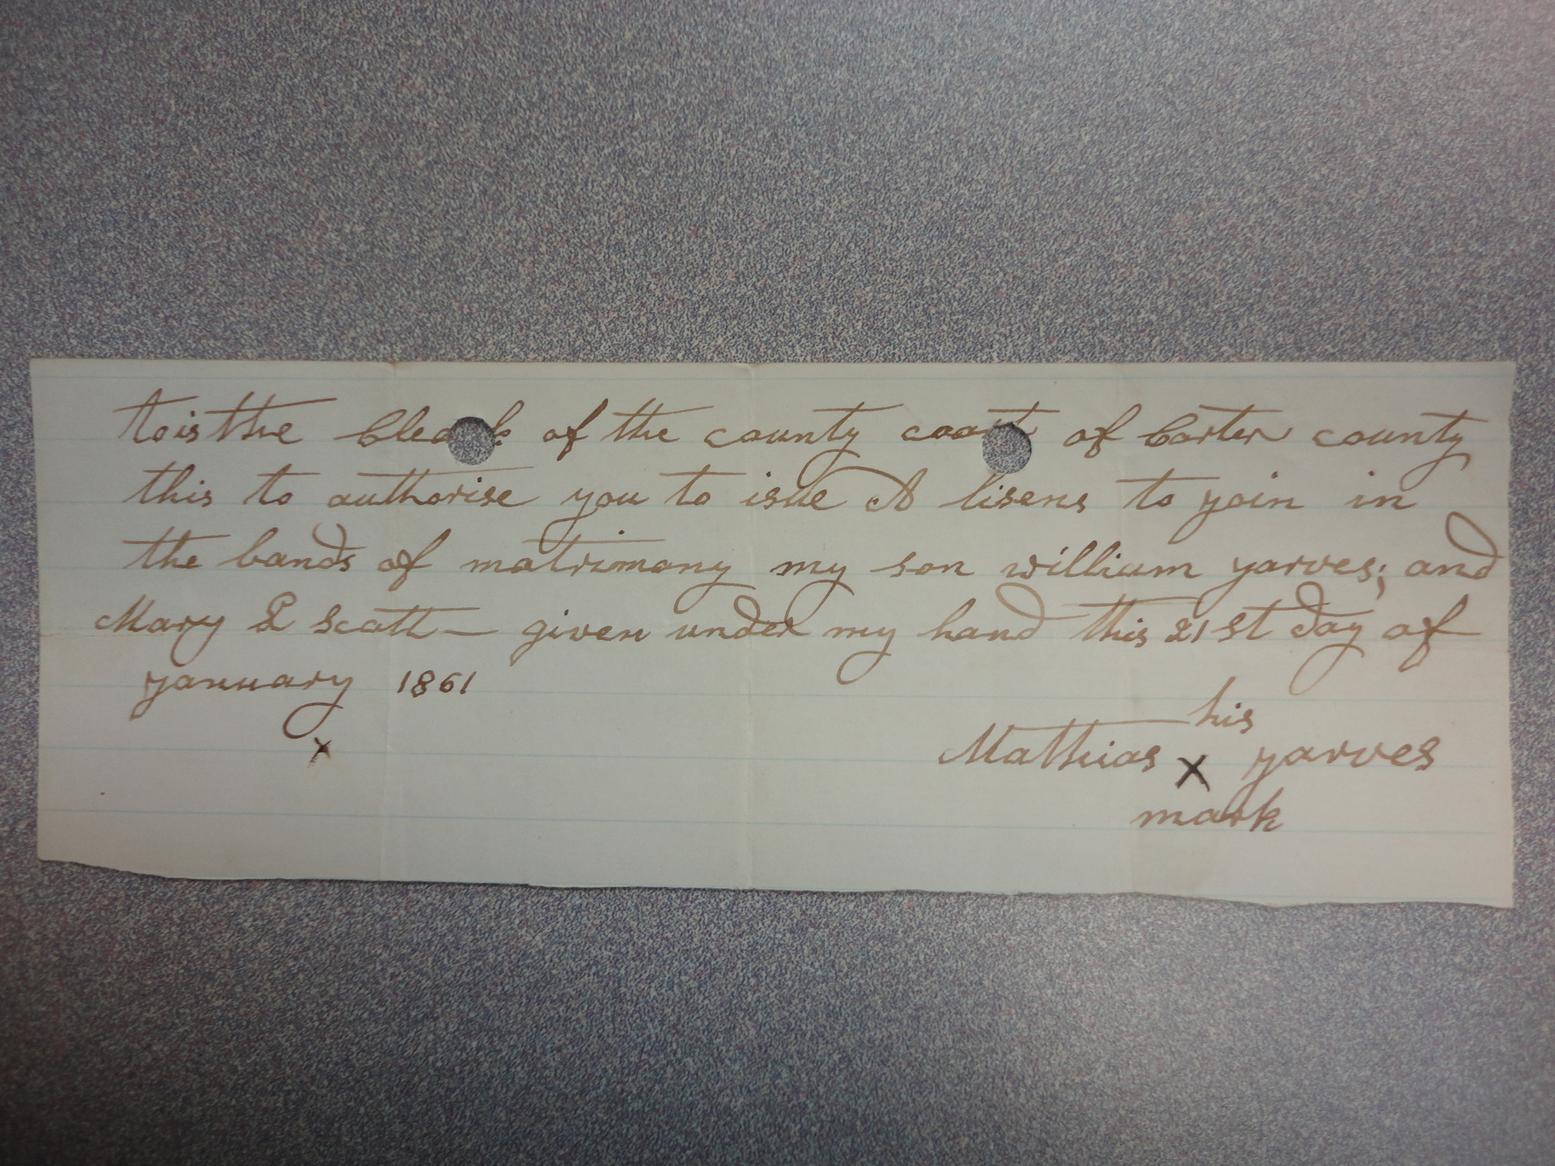 tois the Clea k of the county coart of Carter county
this to authorise you to isue A lisens to yoin in
the bands of matrimony my son william yarves; and
Mary E Scott — given under my hand this 21st day of
yanuary 1861
x
his
Mathias X yarves
mark